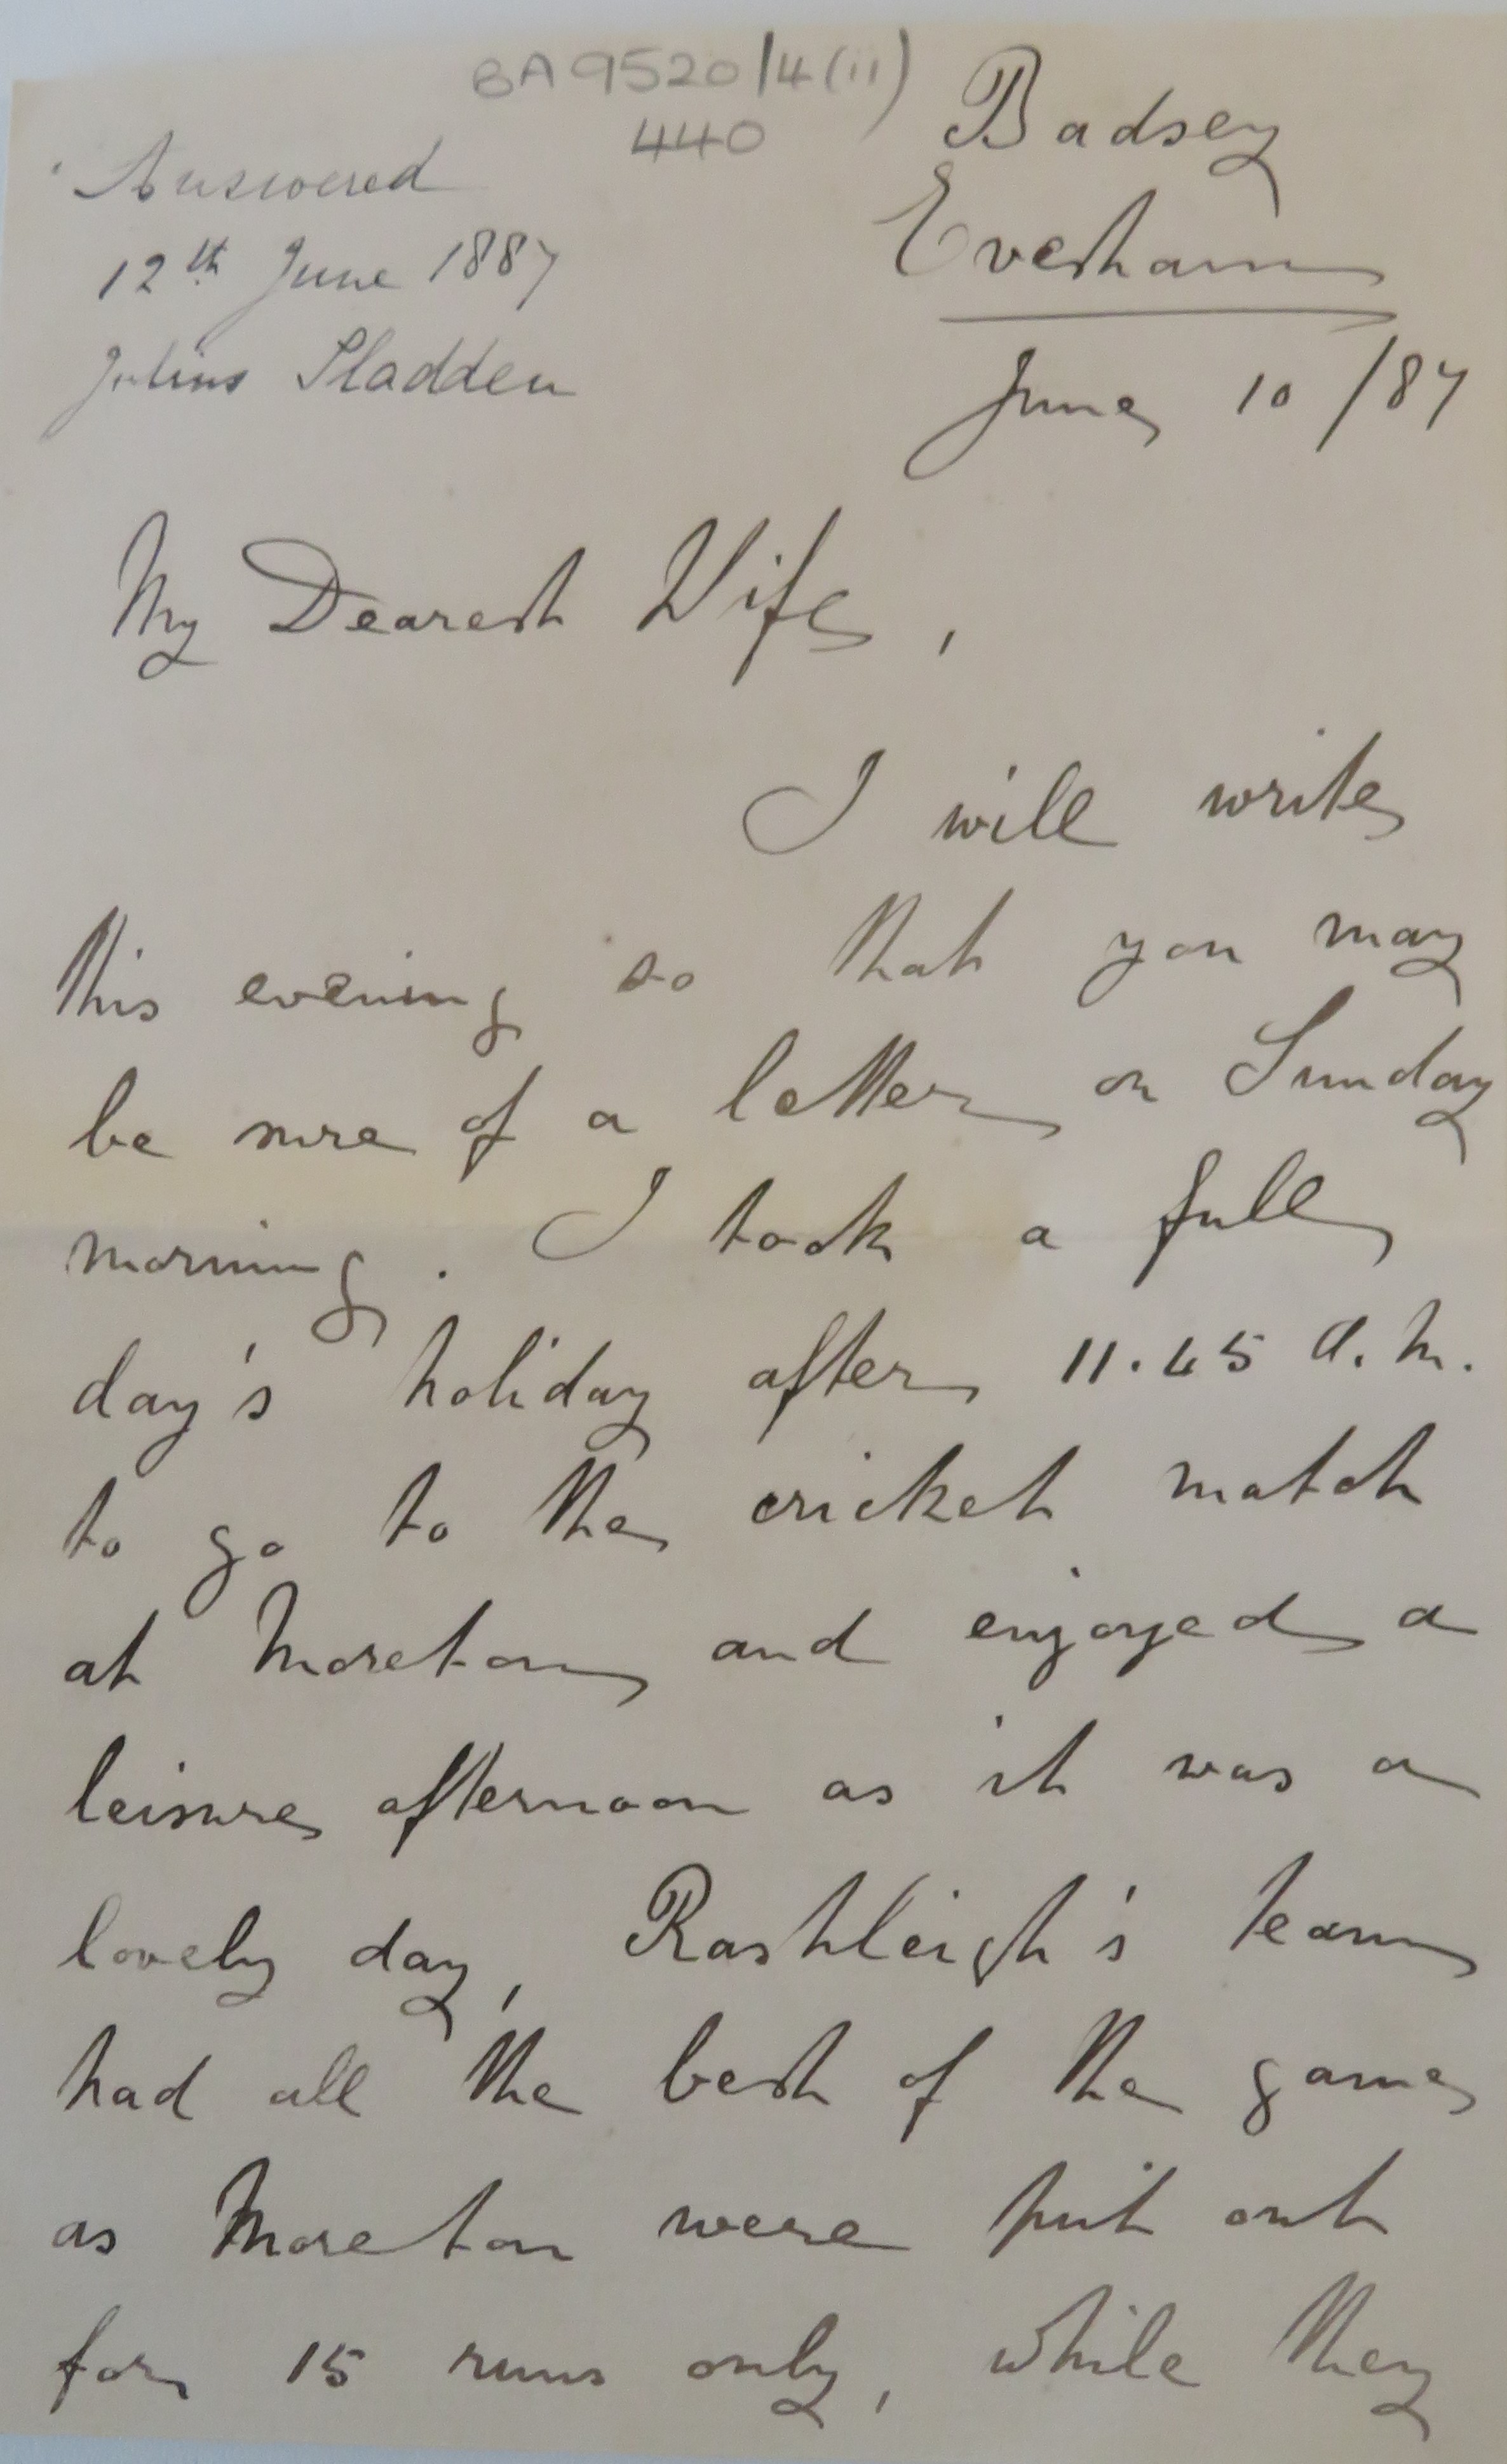 BA9520/4(ii)
440
Answered
12th June 1887
Julius Sladden
Badsey
Evesham
June 10/87
My Dearest Wife,
I will write
this evening so that you may
be sure of a letter on Sunday
morning. I took a full
day's holiday after 11.45 a.m.
to go to the cricket match
at Moreton and enjoyed a
leisure afternoon as it was a
lovely day, Rashleigh's team
had all the best of the game
as Moreton were put out
for 15 runs only, while they